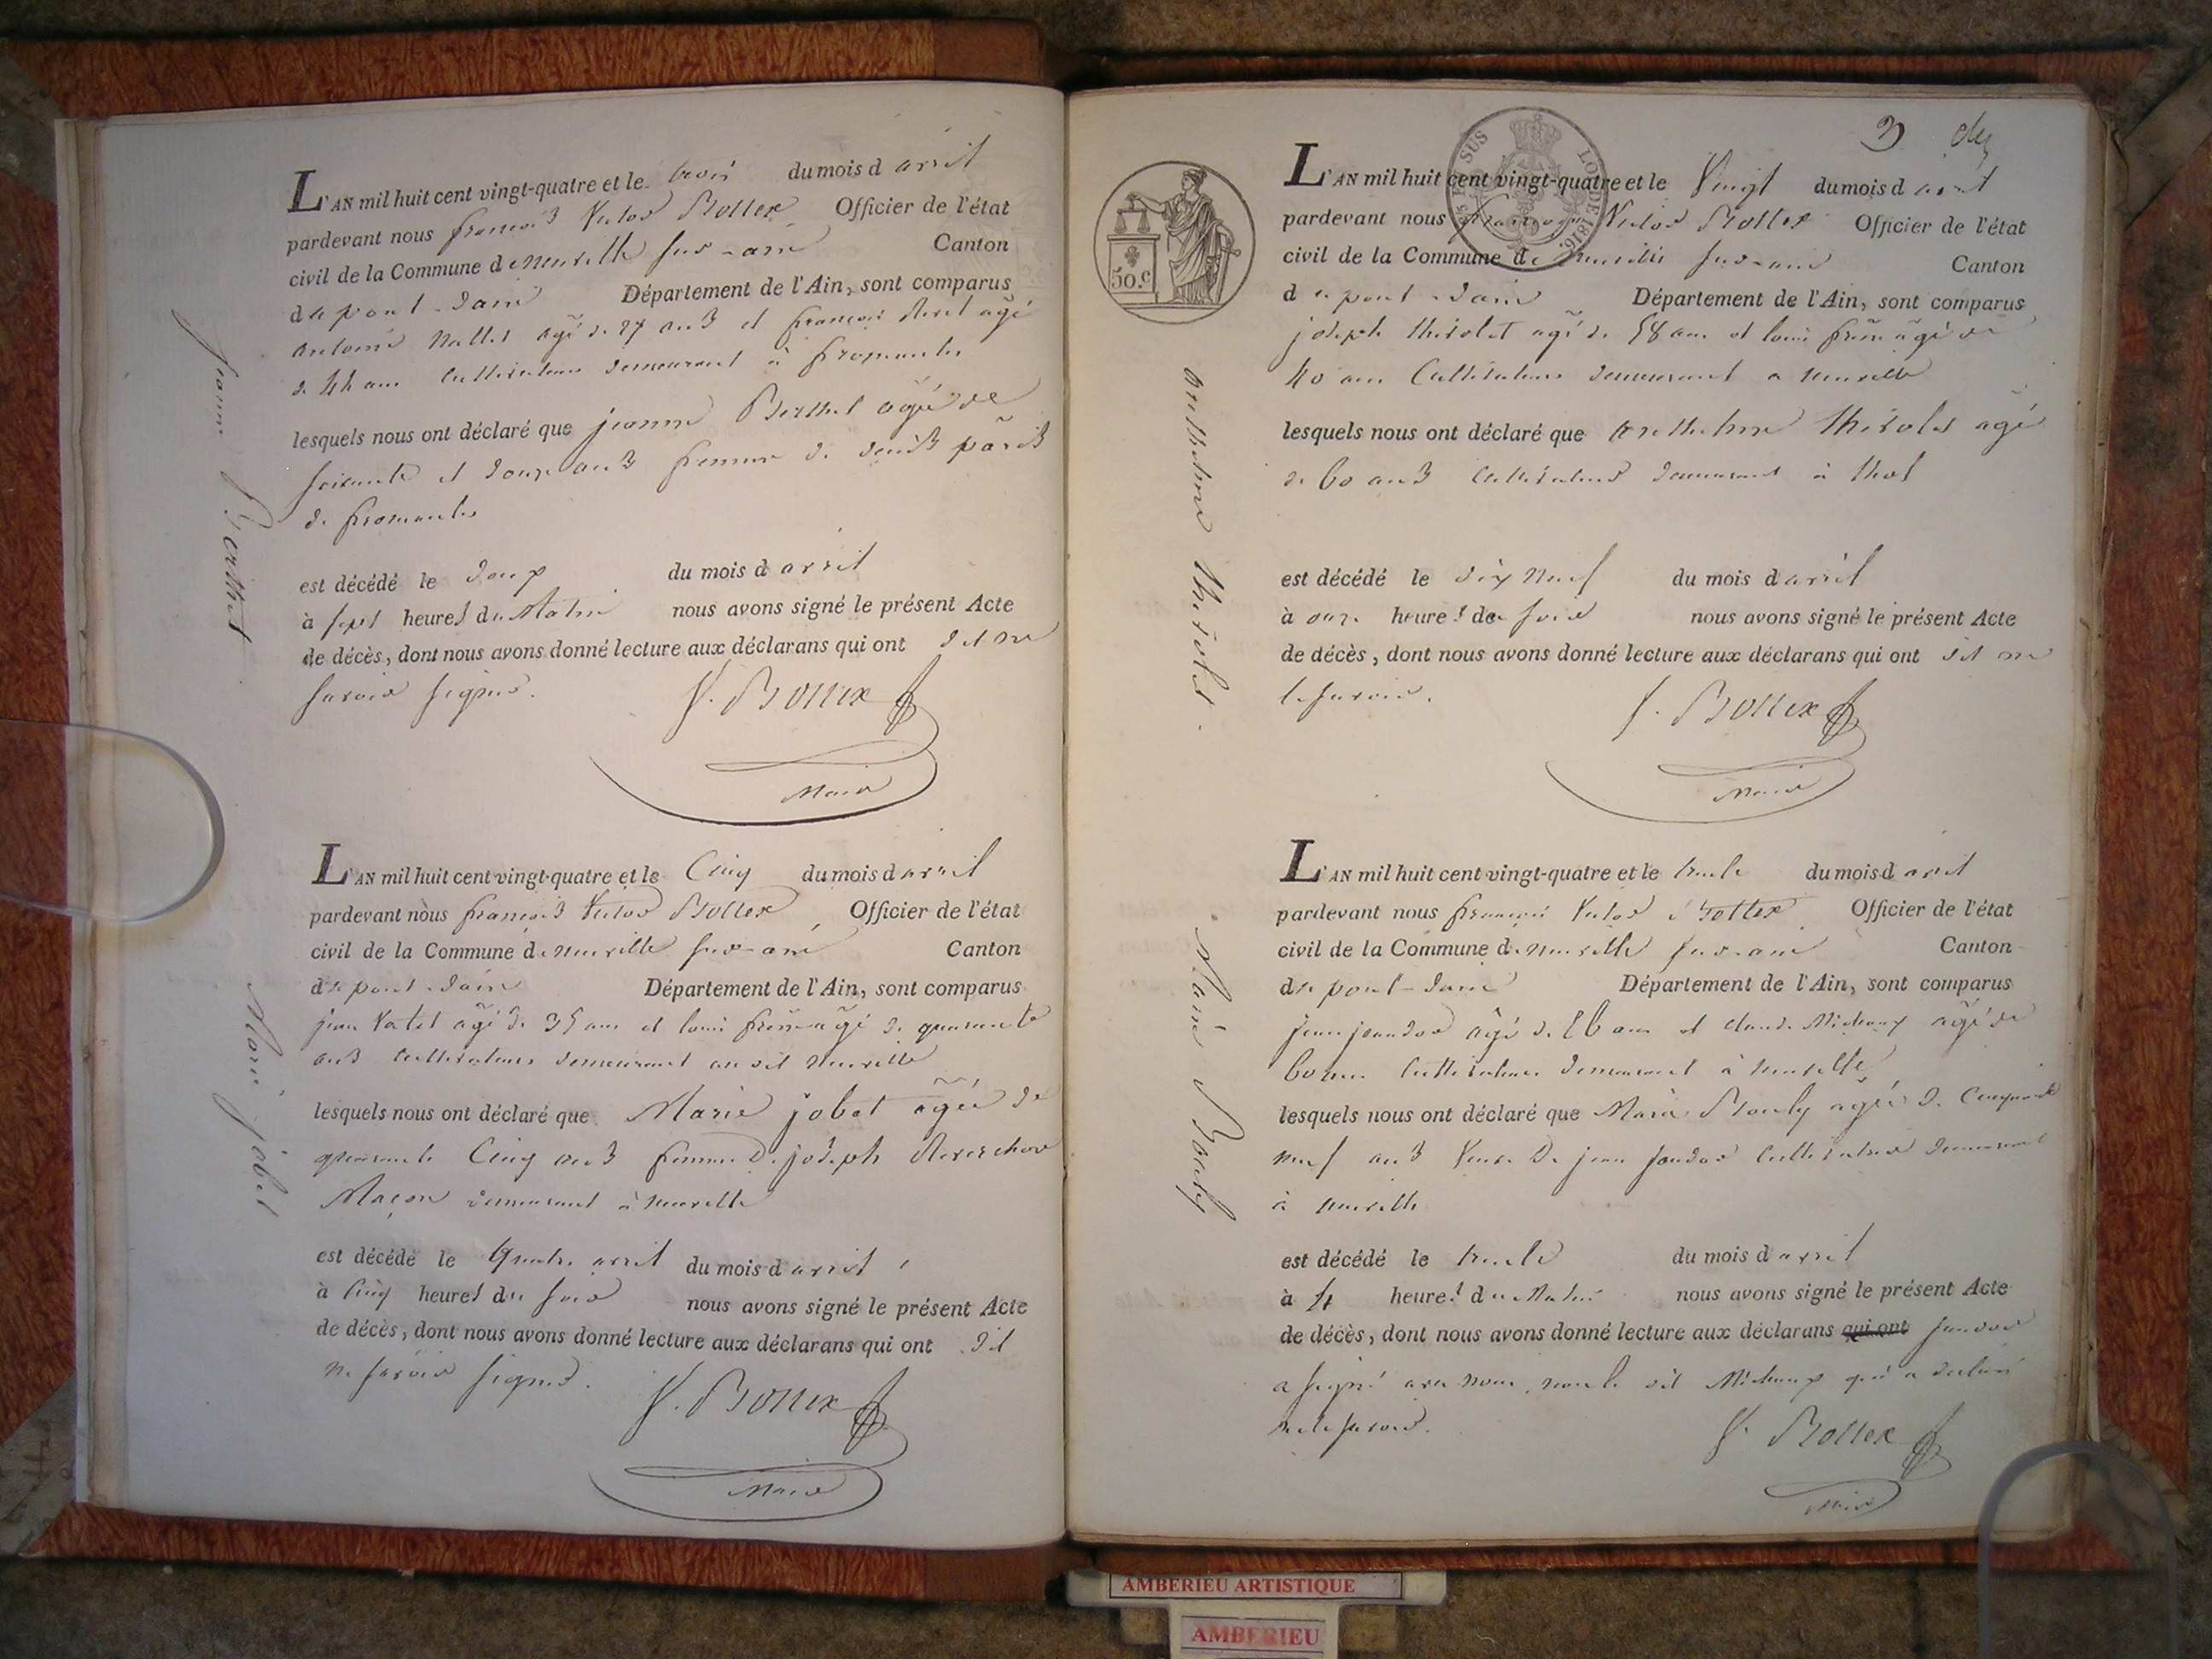 L'AN mil huit cent vingt-quatre et le trois du mois d avril
pardevant nous françois Victor Bottex Officier de l'état
civil de la Commune de neuville sur-ain Canton
de pont-dain Département de l'Ain, sont comparus
antoine agé de 27 ans et françois agé
de 44 ans cultivateurs demeurant à fromentes
lesquels nous ont déclaré que jeanne Berthet agée de
soixante et douze ans femme de denis
de fromentes
est décédé le douze du mois d avril
à sept heures du Matin nous avons signé le présent Acte
de décès, dont nous avons donné lecture aux déclarans qui ont dit ne
savoir signer.
V. Bottex
Maire
jeanne Berthet
L'AN mil huit cent vingt-quatre et le Cinq du mois d avril
pardevant nous françois Victor Bottex Officier de l'état
civil de la Commune de neuville sur-ain Canton
de pont-dain Département de l'Ain, sont comparus
jean agé de 35 ans et louis agé de quarante
ans cultivateurs demeurant au dit neuville
lesquels nous ont déclaré que Marie jobet agée de
quarante Cinq ans femme De joseph Reverchon
Maçon demeurant à neuville
est décédé le quatre avril du mois d avril
à Cinq heures du soir nous avons signé le présent Acte
de décès, dont nous avons donné lecture aux déclarans qui ont dit
ne savoir signer.
V. Bottex
Maire
Marie jobet
3 de
50.c
LOI DE 1816.
L'AN mil huit cent vingt-quatre et le Vingt du mois d avril
pardevant nous françois Victor Bottex Officier de l'état
civil de la Commune de neuville sur-ain Canton
de pont-dain Département de l'Ain, sont comparus
joseph thévolet agé de 58 ans et louis agé de
40 ans Cultivateurs demeurant a neuville
lesquels nous ont déclaré que anthelme thévolet agé
de 60 ans cultivateur demeurant à thol
est décédé le dix neuf du mois d avril
à onze heures du soir nous avons signé le présent Acte
de décès, dont nous avons donné lecture aux déclarans qui ont dit ne
le savoir.
V. Bottex
Maire
anthelme thévolet.
L'AN mil huit cent vingt-quatre et le trente du mois d avril
pardevant nous françois Victor Bottex Officier de l'état
civil de la Commune de neuville sur-ain Canton
de pont-dain Département de l'Ain, sont comparus
jean agé de 26 ans et claude Michaux agé de
60 ans Cultivateurs demeurant à neuville
lesquels nous ont déclaré que Marie Bouly agée de Cinquante
neuf ans Veuve De jean Cultivateur demeurant
à neuville
est décédé le trente du mois d avril
à 4 heures du Matin nous avons signé le présent Acte
de décès, dont nous avons donné lecture aux déclarans qui ont
a signé avec nous, non le dit Michaux qui a déclaré
ne le savoir.
V. Bottex
Maire
Marie Bouly
AMBERIEU ARTISTIQUE
AMBERIEU